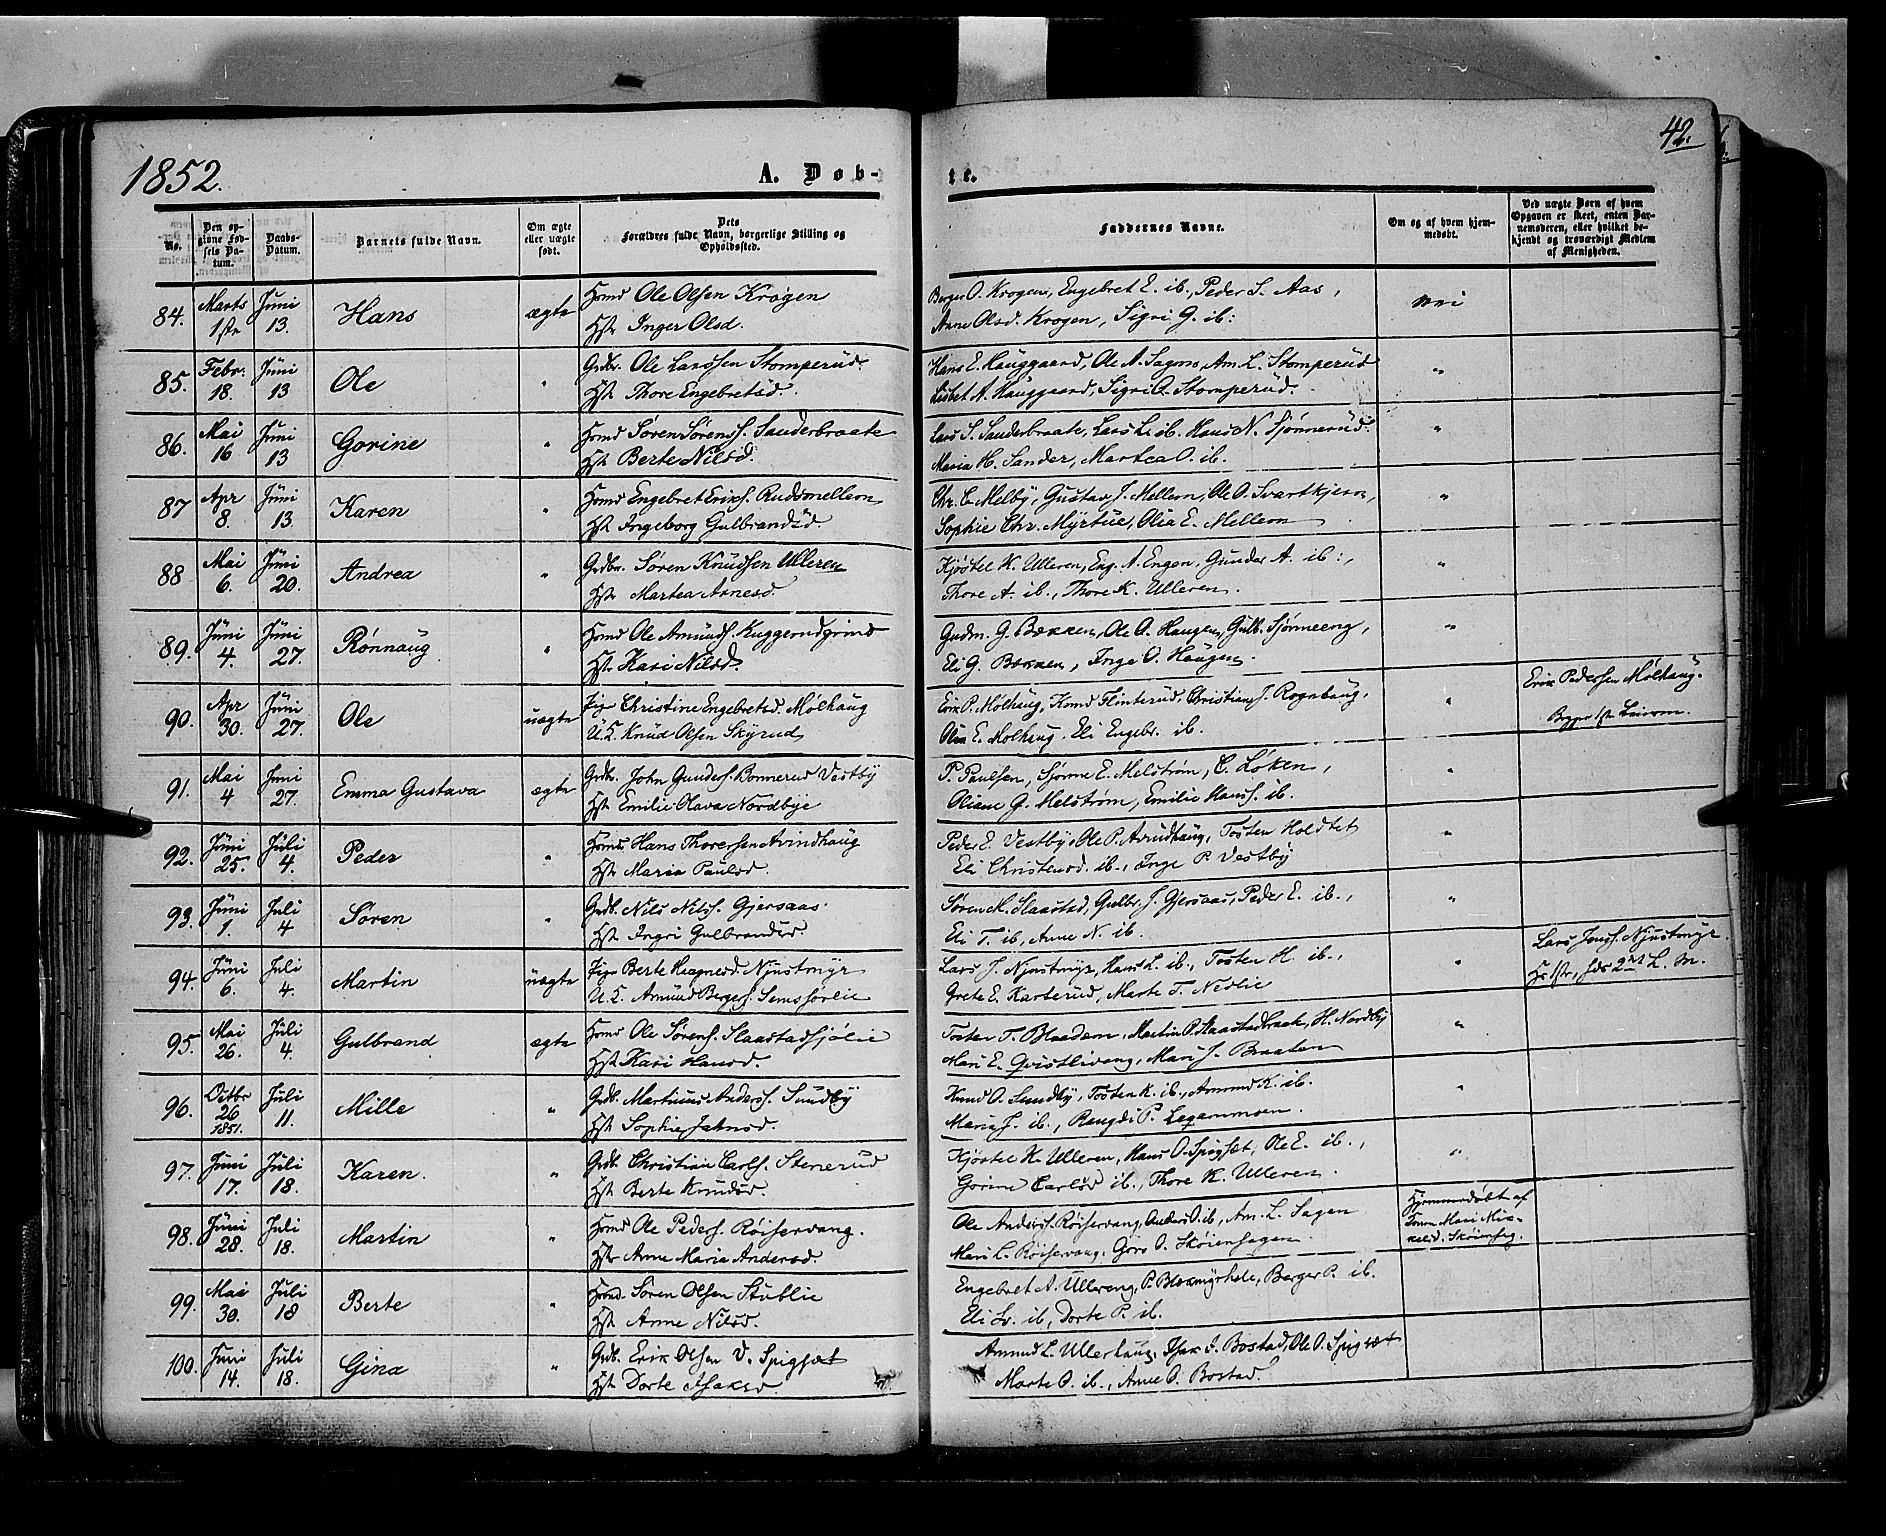 1852.
A. Døb-
te.
42.
No.
Den opgivne Fødsels Datum.
Daabs-Datum.
Barnets fulde Navn.
Om ægte eller uægte født.
Dets Forældres fulde Navn, borgerlige Stilling og Opholdssted.
Faddernes Navne.
Om og af hvem hjemmedøbt.
Ved uægte Børn af hvem Opgaven er skeet, enten Barnemoderen, eller hvilket bekjendt og troværdigt Medlem af Menigheden.
84. Marts 1ste Juni 13. Hans ægte Huusmd Ole Olsen Krogen
Hst. Inger Olsd.
Berger O. Krogen, Engebret E. ib., Peder S. Aas,
Anne Olsd. Krogen, Sigri G. ib:
nei
85. Febr. 18. Juni 13 Ole " Grdbr. Ole Larssen Stomperud.
Hst. Thore Engebretsd.
Hans E. Hauggaard, Ole A. Sagen, Am. L. Stomperud
Lisbet A. Hauggaard, Sigri O. Stomperud.
"
86. Mai 16 Juni 13 Gorine " Hsmd Søren Sørens. Sanderbraate
Hst. Berte Nilsd.
Lars S. Sanderbraate, Lars L. ib. Hans N. Sjønnerud.
Maria H. Sander, Martea O. ib.
"
87 Apr 8. Juni 13. Karen " Hsmd Engebret Eriks. Rudsmellem
Hst. Ingeborg Gulbrandsd.
Chr. C. Melby, Gustav J. Mellem, Ole O. Svartkjern,
Sophie Chr. Myrtue, Olia E. Mellem
"
88 Mai 6. Juni 20. Andrea " Grdbr. Søren Knudsen Ulleren
Hst. Martea Arnesd.
Kjøstel K. Ulleren, Eng. A. Engen, Gunder A. ib:,
Thore A. ib., Thore K. Ulleren.
"
89. Juni 4. Juni 27. Rønnaug " Hsmd Ole Amunds. Kuggerudgrind
Hst. Kari Nilsd.
Gudm. G. Bækken, Ole O. Haugen, Gulb. Sjønneeng,
Eli G. Bækken, Inge O. Haugen.
"
90. Apr 30. Juni 27. Ole uægte Pige Christine Engebretsd. Mølhaug
U.K. Knud Olsen Skyrud
Erik P. Mølhaug, Knud Flinterud, Christian J. Rognhaug,
Olia E. Molhaug. Eli Engebr. ib.
"
Erik Pedersen Mølhaug.
91. Mai 4 Juni 27. Emma Gustava ægte Grdbr. John Gunders. Bonnerud Vestby
Hst. Emilie Olava Nordbye
P. Paulsen, Sjønne E. Melstrøm, C. Løken,
Oliane G. Melstrøm, Emilie Hans. ib.
"
92. Juni 25. Juli 4. Peder " Hsmd. Hans Thoresen Arvindhaug
Hst. Maria Paulsd.
Peder E. Vestby, Ole P. Arvindhaug, Tosten Holdtet
Eli Christensd. ib., Inge P. Vestby
"
93. Juni 1. Juli 4 Søren " Grdb. Nils Nils. Gjersaas.
Hst. Ingri Gulbrandsd.
Søren M. Slaastad, Gulbr. J. Gjersaas, Peder E. ib.,
Eli T. ib, Anne N. ib.
"
94. Juni 6. Juli 4. Martin uægte Pige Berte Magnesd. Njustmyr
U.K. Amund Bergers. Semssørlie
Lars J. Njustmyr, Hans L. ib., Tosten H. ib.,
Grete E. Karterud, Marte T. Nedlie
"
Lars Jons. Njustmyr.
95. Mai 26. Juli 4. Gulbrand ægte Hsmd Ole Sørens. Slaastadsjølie
Hst. Kari Hansd.
Tosten T. Bladem, Martin P. Slaastadbraate, H. Nordby
Mari E. Qvistlivang, Mari J. Braaten
"
96. Octbr 26 1851. Juli 11. Mille " Grdb. Martinus Anders. Sundby
Hst. Sophie Jahnsd.
Knud O. Sundby, Tosten K. ib., Ammund K. ib.
Maria J. ib., Rangdi P. Legammoen.
"
97. Juni 17. Juli 18. Karen. " Grdb. Christian Carls. Stenerud
Hst. Berte Knudsd.
Kjøstel K. Ulleren, Hans O. Spigset, Ole E. ib.,
Gorine Carlsd ib., Thore K. Ulleren.
"
98. Juni 28. Juli 18. Martin " Hsmd Ole Peders. Røiservang.
Hst. Anne Maria Andersd.
Ole Anders. Røiservang, Anders O. ib, Am. L. Sagen
Mari L. Røiservang, Goro O. Skøienhagen.
Hjemmedøbt af
Konen Mari Mik-
kelsd. Skøienhag.
99. Mai 30. Juli 18 Berte " Hsmd. Søren Olsen Stublie
Hst. Anne Nilsd.
Engebret A. Ullereng, P. Blekmyrhole, Berger P. ib.
Eli Sr. ib, Dorte P. ib.
100. Juni 14. Juli 18. Gina " Grdb. Erik Olsen V. Spigset
Hst. Dorte Isaksd
Ammund L. Ullerhaug, Isak I. Bostad, Ole O. Spigset
Marte O. ib., Anne O. Bostad.